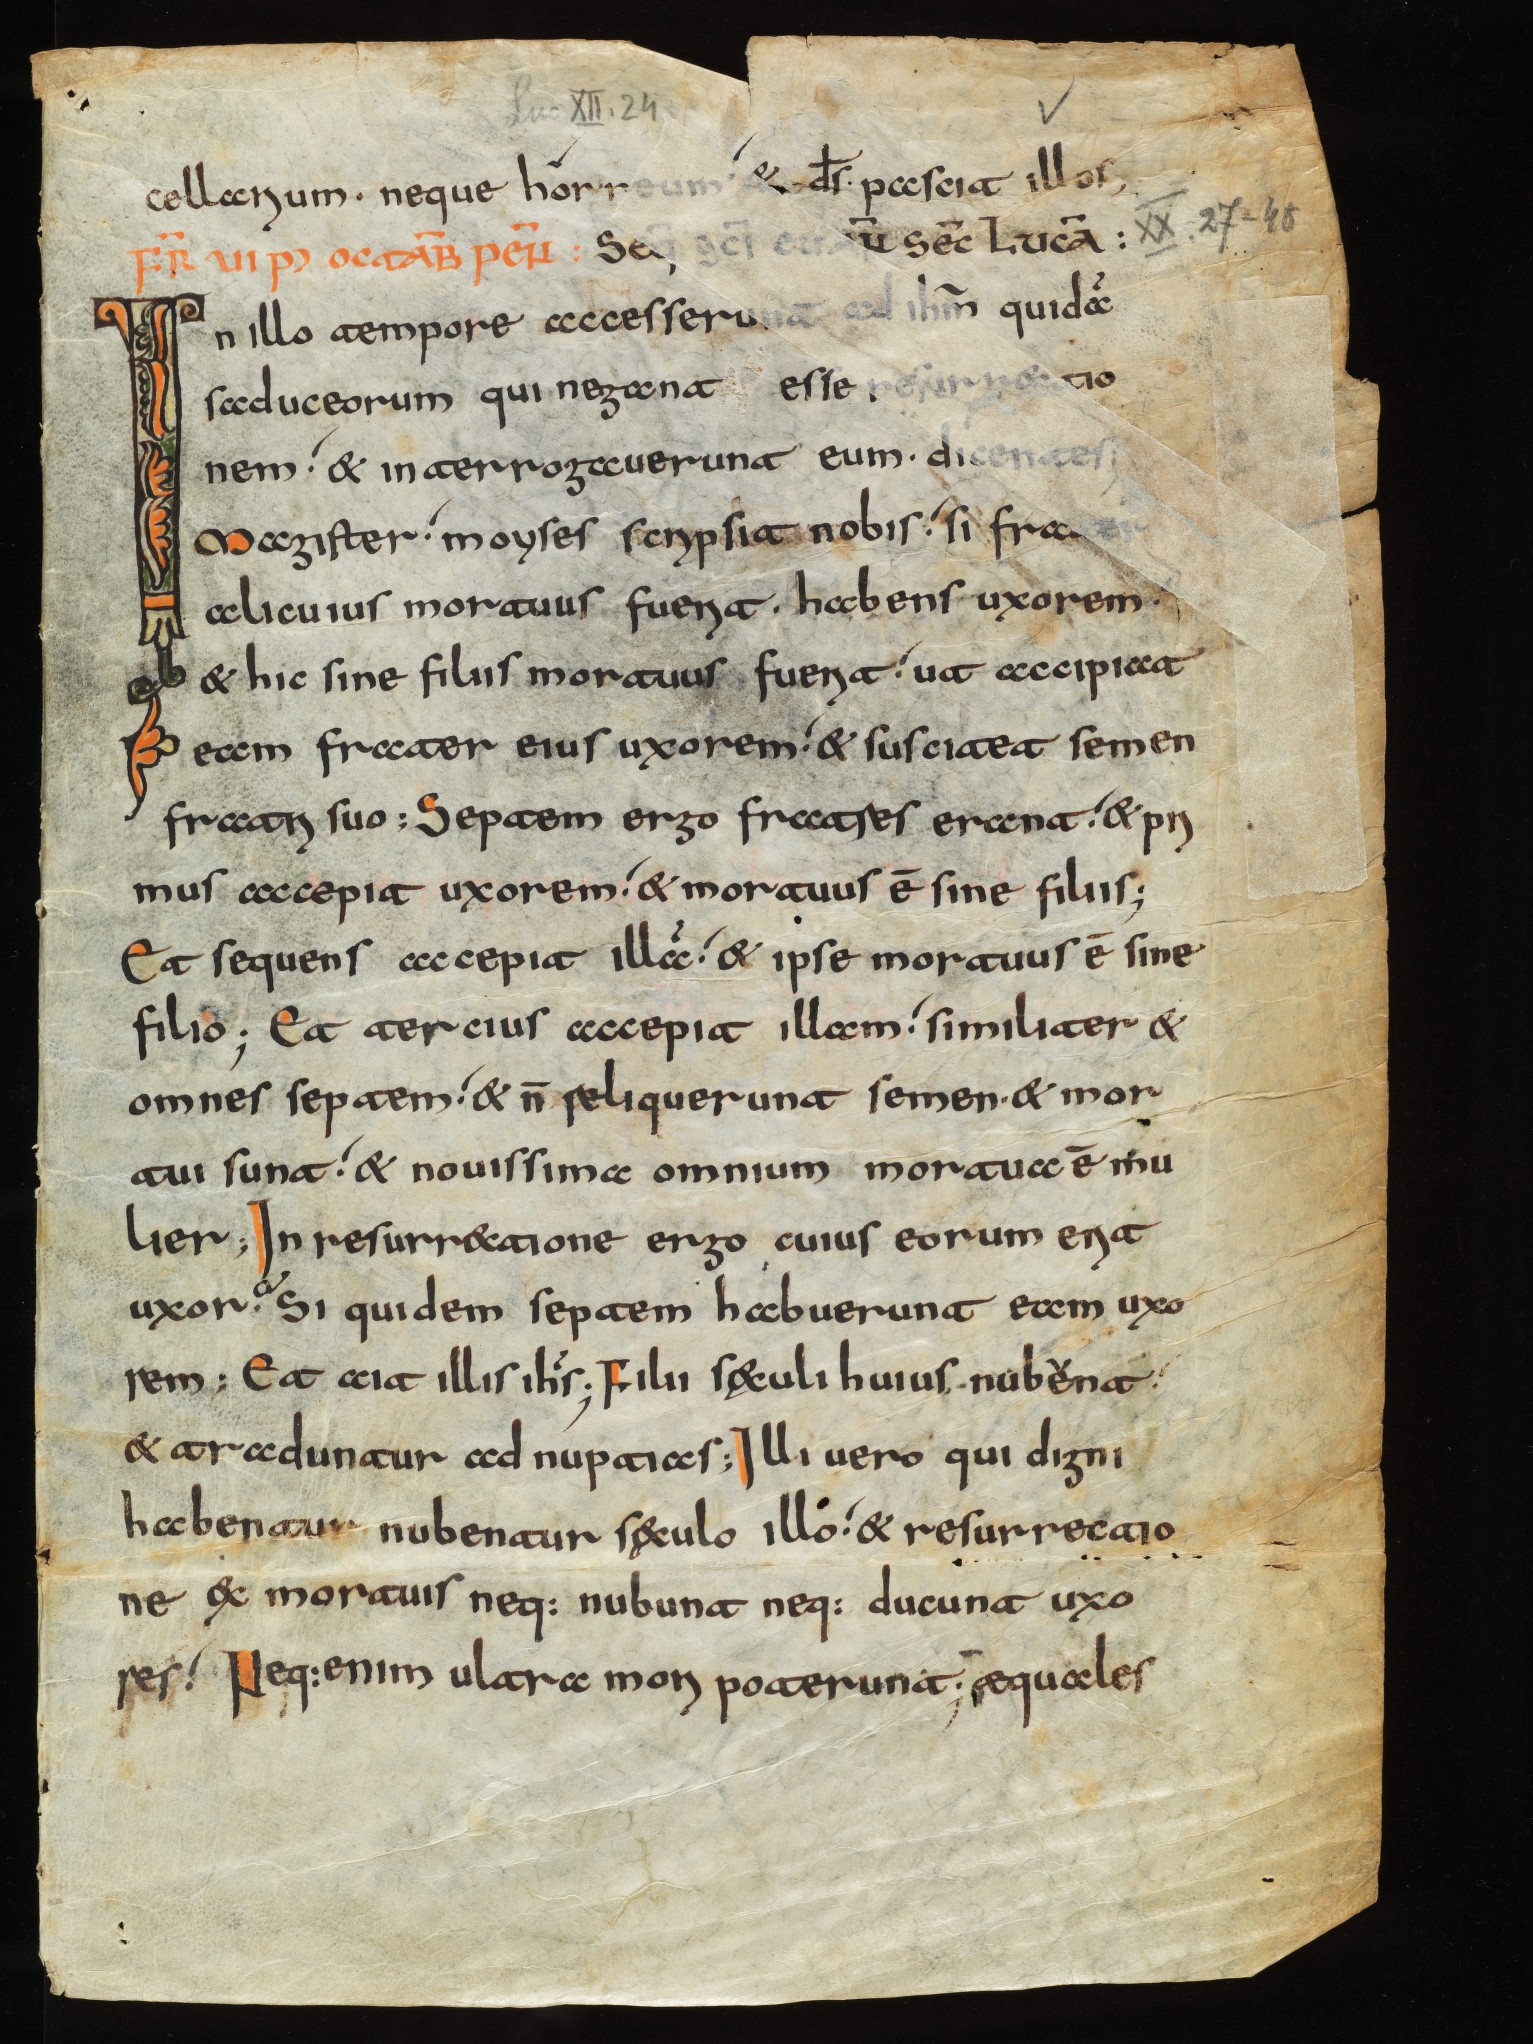 Luc XII. 24
cellarium. neque horreum & d̄s. pascit illos;
XX. 27-48
FR̄ VI P' OCTAB PEN̄: Seq̄ s̄cī eu ū Sēc Lucā:
In illo tempore accesserunt ad ih̄m quidā
saduceorum qui negant esse resurrectio
nem & interrogauerunt eum. dicentes
Magister moyses scripsit nobis si frater
alicuius mortuus fuerit. habens uxorem.
& hic sine filiis mortuus fuerit ut accipiat
eam frater eius uxorem & suscitet semen
fratri suo; Septem ergo fratres erant & pri
mus accepit uxorem & mortuus ē sine filiis;
Et sequens accepit illā & ipse mortuus ē sine
filio; Et tercius accepit illam similiter &
omnes septem & n̄ reliquerunt semen. & mor
tui sunt & nouissima omnium mortua ē mu
lier; In resurrectione ergo cuius eorum erit
uxor? Si quidem septem habuerunt eam uxo
rem; Et ait illis ih̄s; Filii sęculi huius nubent
& traduntur ad nuptias; Illi uero qui digni
habentur nubentur sęculo illo & resurrectio
ne ex mortuis neq: nubunt neq: ducunt uxo
res Neq: enim ultra mori poterunt; ęquales